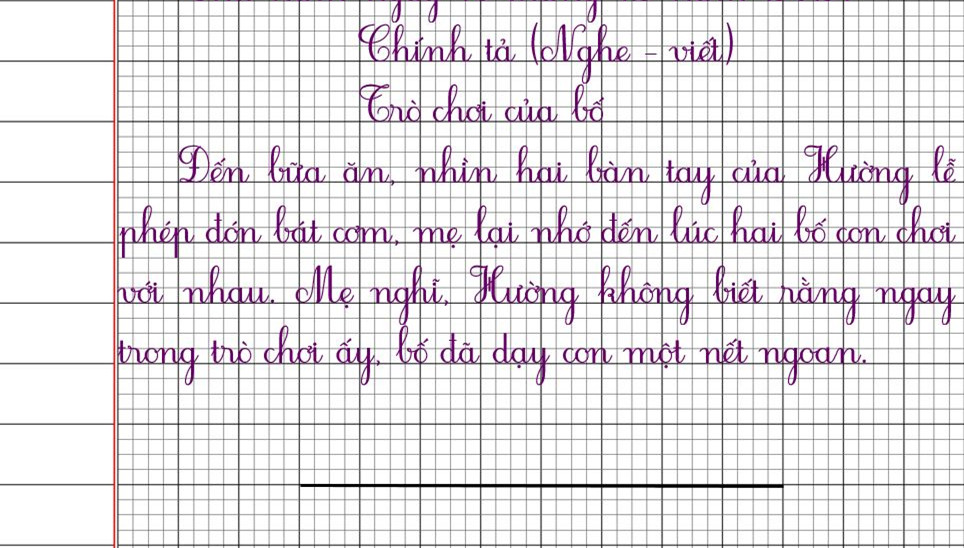 Chính tả (Nghe - viết)
Trò chơi của bố
Đến bữa ăn, nhìn hai bàn tay của Hường lễ
phép đón bát cơm, mẹ lại nhớ đến lúc hai bố con chơi
với nhau. Mẹ nghĩ, Hường không biết rằng ngay
trong trò chơi ấy, bố đã dạy con một nết ngoan.